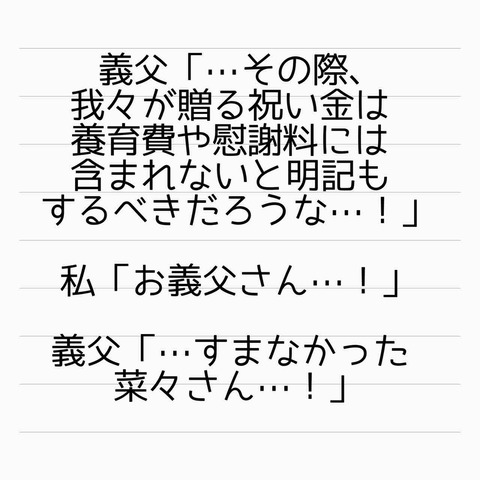 義父「…その際、
我々が贈る祝い金は
養育費や慰謝料には
含まれないと明記も
するべきだろうな…！」
私「お義父さん…！」
義父「…すまなかった
菜々さん…！」